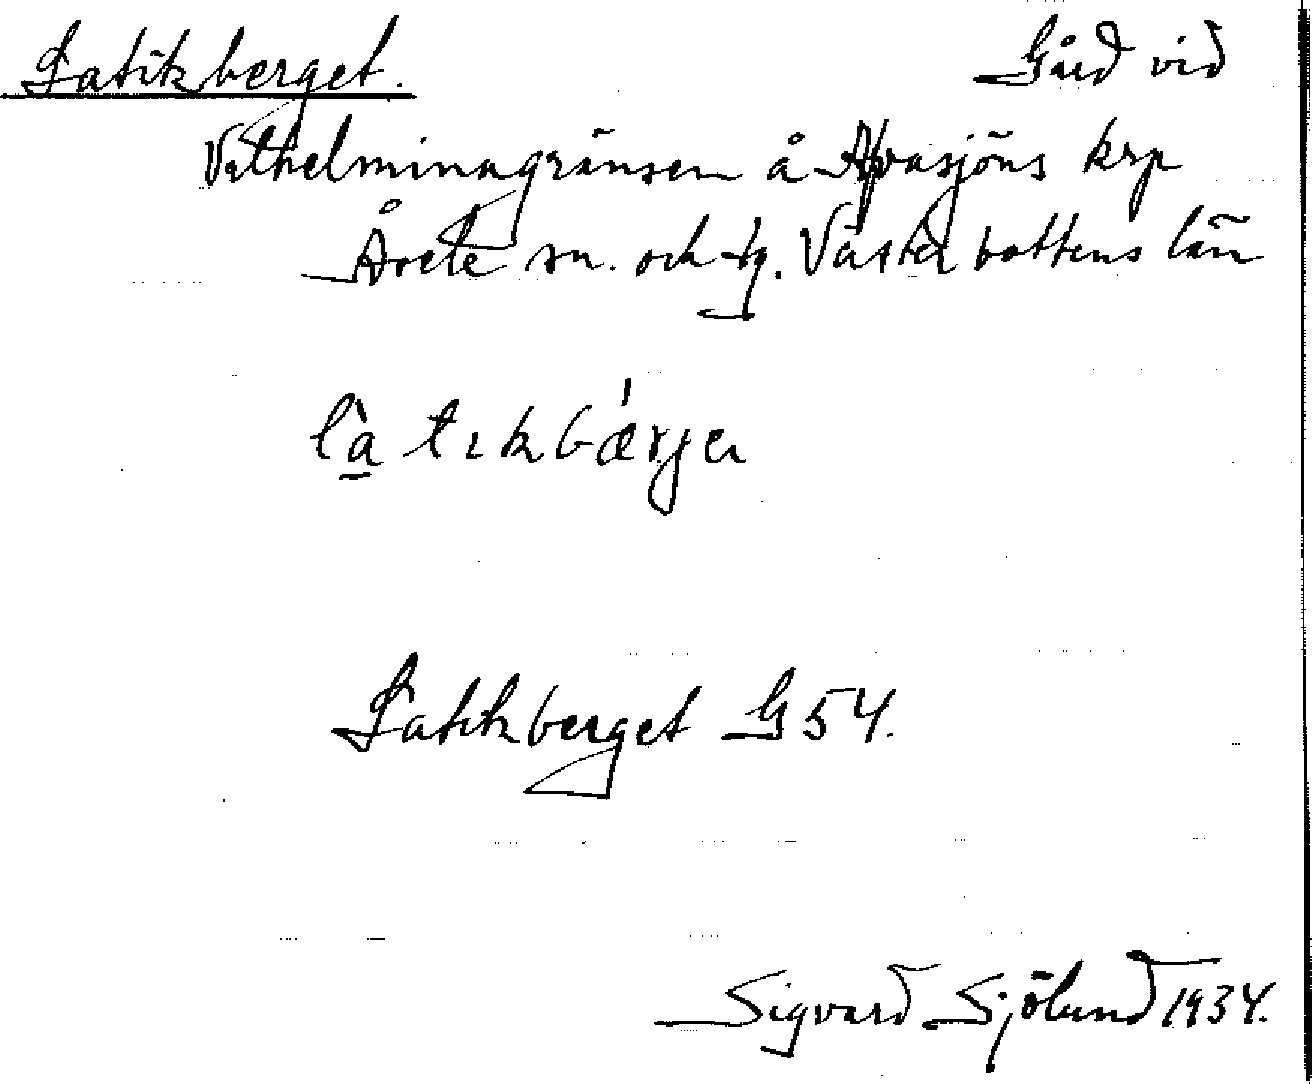 Latikberget. Gård vid
Vilhelminagränsen å Alvasjöns krp
Åsele sn. och tg. Västerbottens län
là tɩkbǽrjɛ
Latikberget G54.
Sigvard Sjölund 1934.